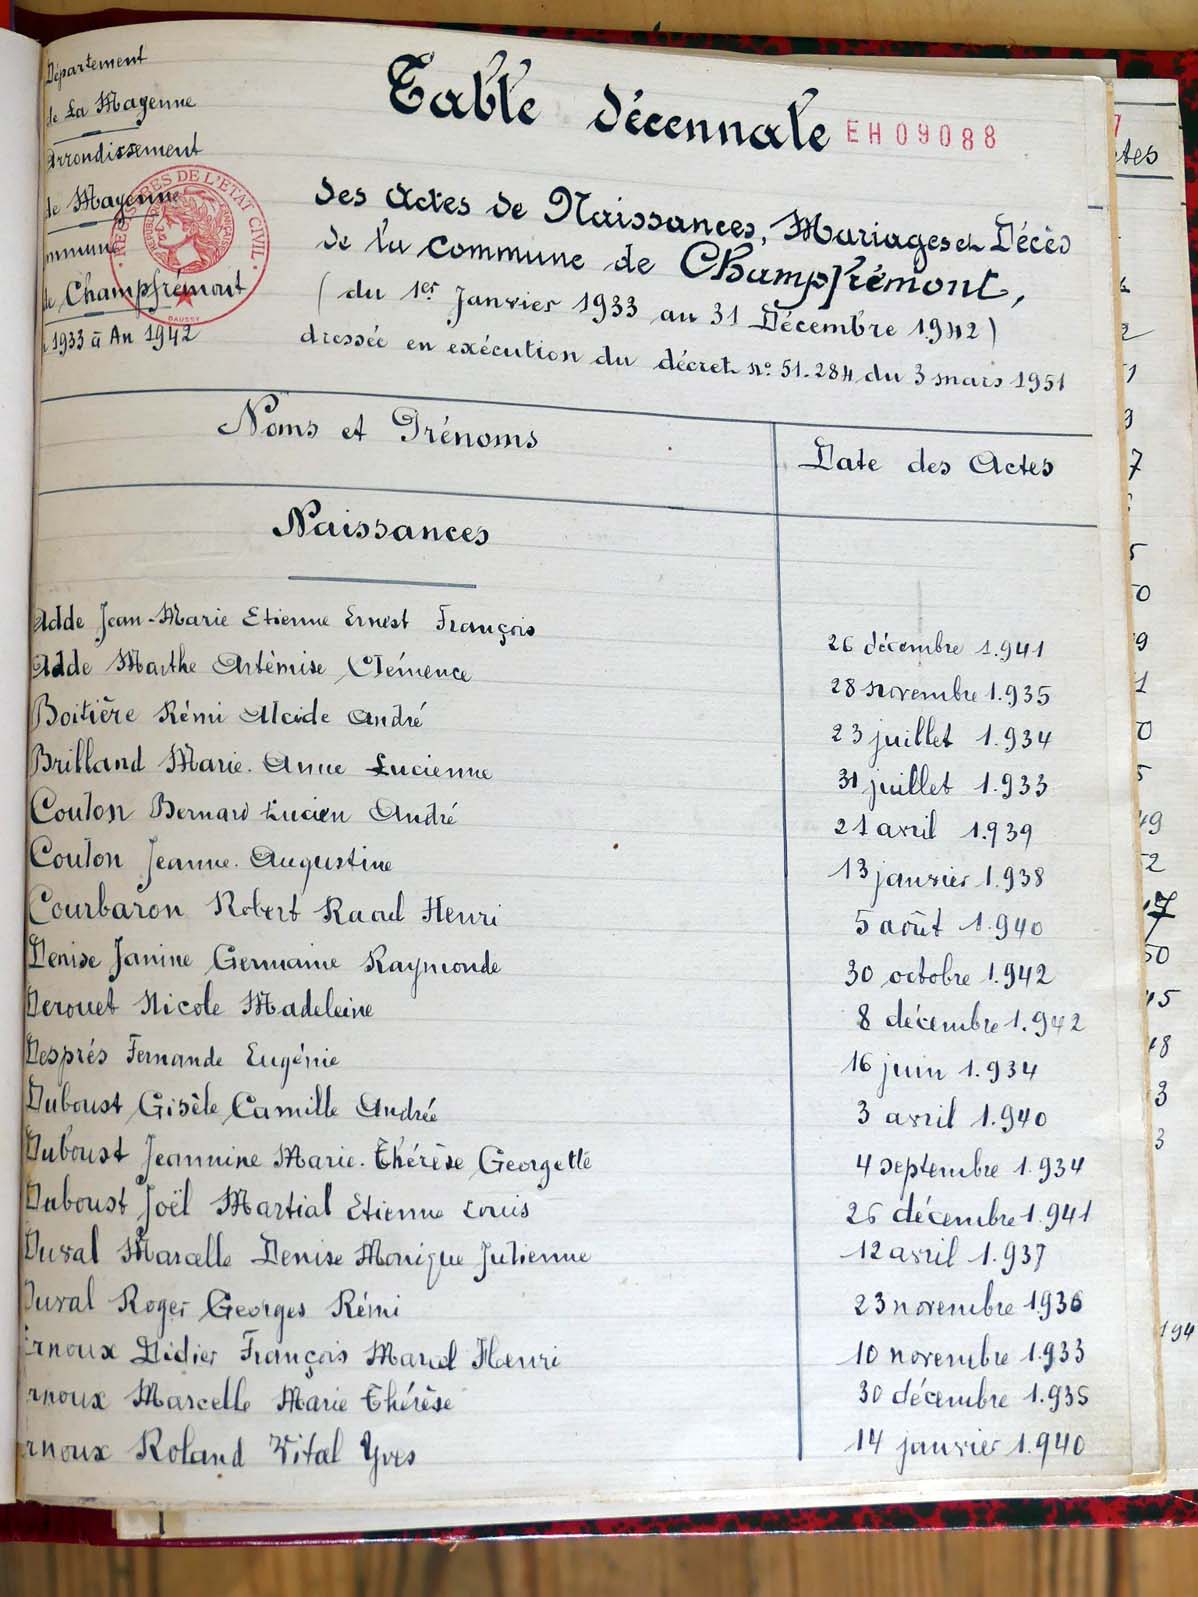 Département
de La Mayenne
Arrondissement
de Mayenne
de Champfrémont
1933 à An 1942
REGISTRES DE L'ETAT CIVIL
DAUSSY
Table décennale
EH09088
des actes de Naissances, Mariages et Décès
de la commune de Champfrémont,
(du 1er Janvier 1933 au 31 Décembre 1942)
dressée en exécution du décret n° 51.284 du 3 mars 1951
Noms et Prénoms
Date des Actes
Naissances
Adde Jean-Marie Etienne Ernest François 26 décembre 1.941
Adde Marthe Artémise Clémence 28 novembre 1.935
Boitière Rémi Alcide André 23 juillet 1.934
Brilland Marie-Anne Lucienne 31 juillet 1.933
Coulon Bernard Lucien André 21 avril 1.939
Coulon Jeanne-Augustine 13 janvier 1.938
Courbaron Robert Raoul Henri 5 août 1.940
Denise Janine Germaine Raymonde 30 octobre 1.942
Derouet Nicole Madeleine 8 décembre 1.942
Després Fernande Eugénie 16 juin 1.934
Duboust Gisèle Camille Andrée 3 avril 1.940
Duboust Jeannine Marie-Thérèse Georgette 4 septembre 1.934
Duboust Joël Martial Etienne Louis 26 décembre 1.941
Duval Marcelle Denise Monique Julienne 12 avril 1.937
Duval Roger Georges Rémi 23 novembre 1936
Ernoux Didier François Marcel Henri 10 novembre 1.933
rnoux Marcelle Marie Thérèse 30 décembre 1.935
rnoux Roland Vital Yves 14 janvier 1.940